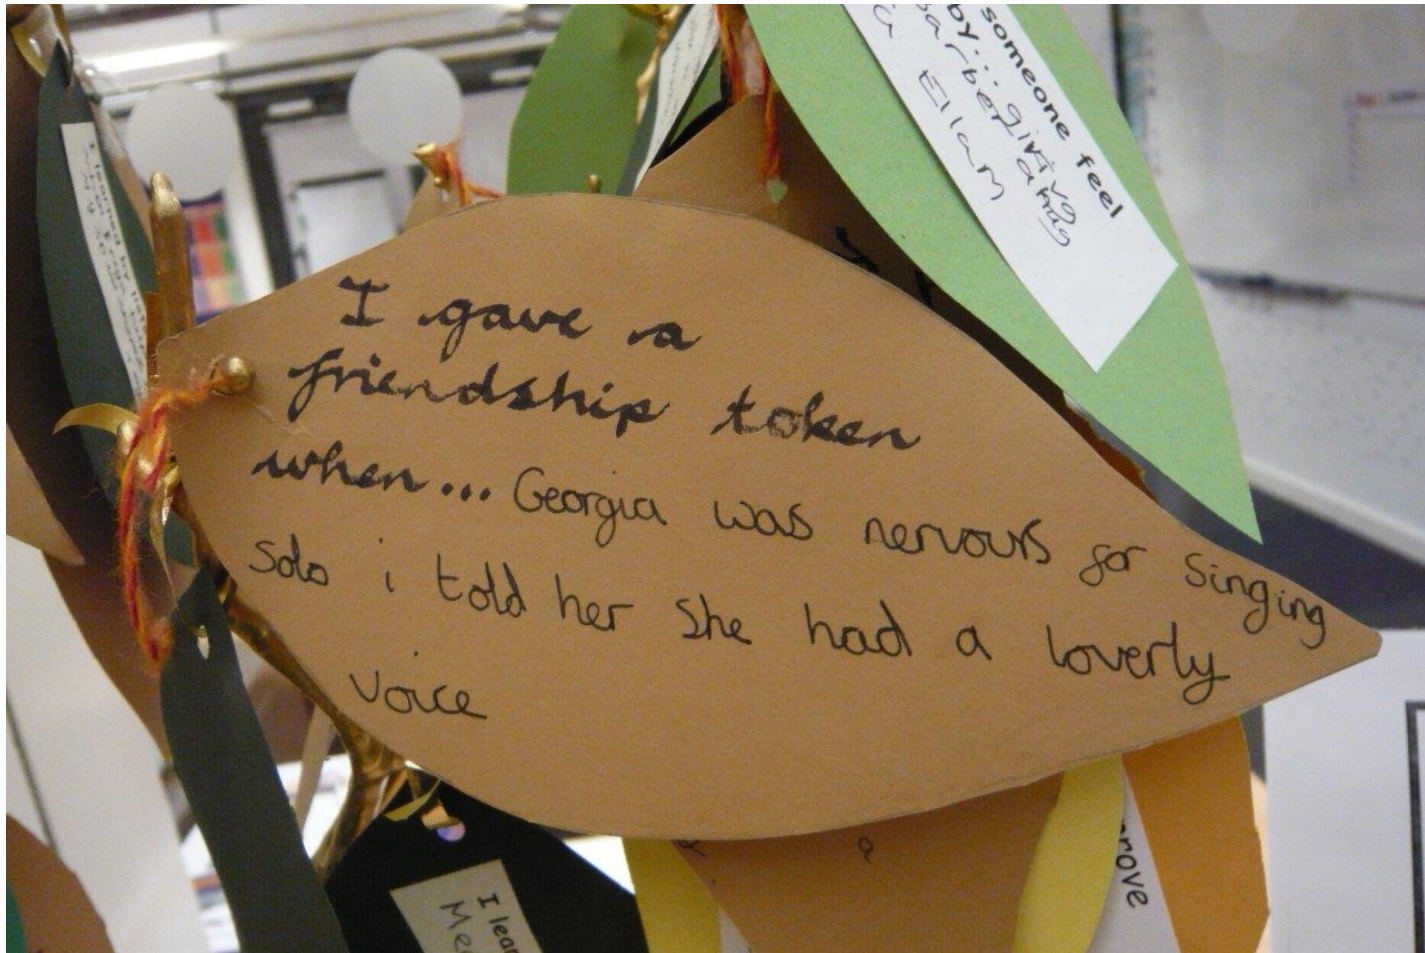 I gave a
friendship token
when... Georgia was nervours for singing
solo i told her she had a loverly
voice
someone feel
by... giving
a hug
Ellam
I learned by
I lear
rove